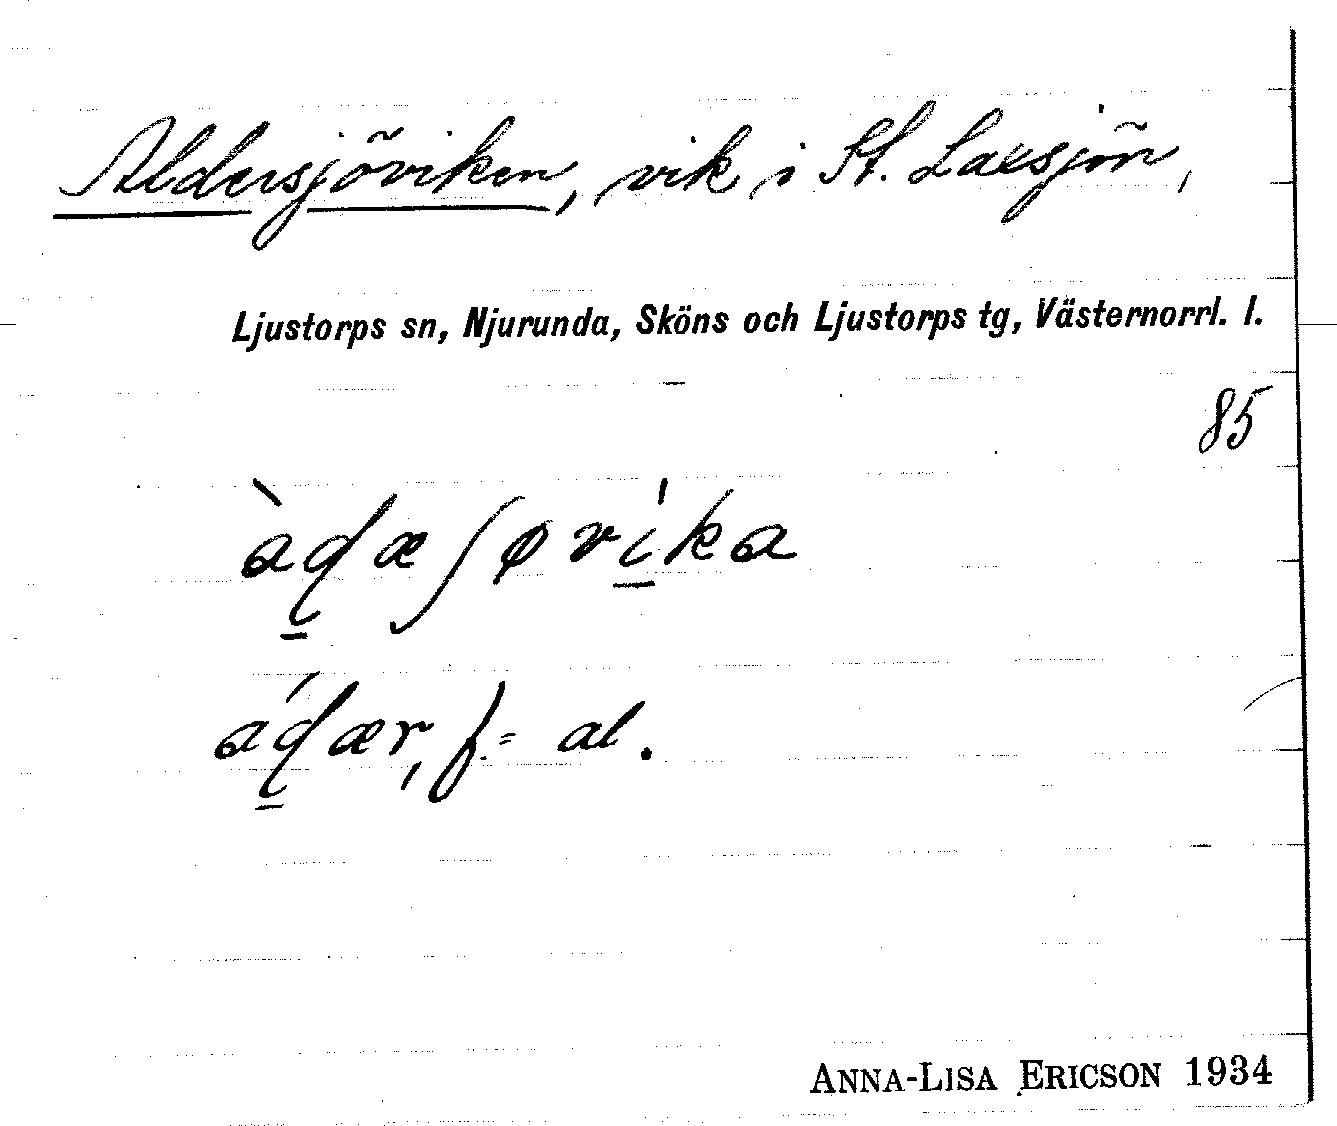 Aldersjöviken, vik i St. Laxsjön,
Ljustorps sn, Njurunda, Sköns och Ljustorps tg, Västernorrl. l.
85
àɖæʃøvi̱ka
áɖær, f. = al.
ANNA-LISA ERICSON 1934